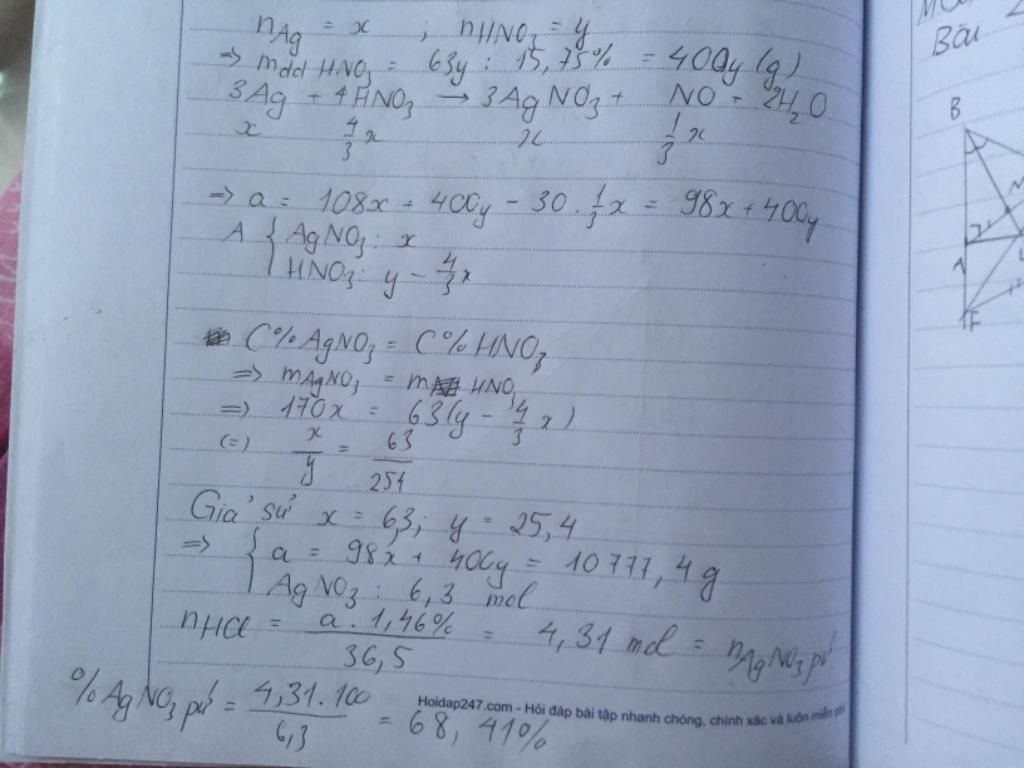 nAg = x ; nHNO3 = y
=> mdd HNO3 = 63y : 15,75% = 400y (g)
3Ag + 4HNO3 → 3AgNO3 + NO + 2H2O
x 4/3x x 1/3x
=> a = 108x + 400y - 30 . 1/3x = 98x + 400y
A { AgNO3 : x
HNO3: y - 4/3x
C% AgNO3 = C% HNO3
=> mAgNO3 = m HNO3
=> 170x = 63(y - 4/3 x)
(=) x/y = 63/254
Giả sử x = 63; y = 25,4
=> { a = 98x + 400y = 10777,4 g
AgNO3 : 6,3 mol
nHCl = a . 1,46% / 36,5 = 4,31 mol = nAgNO3 pứ
% AgNO3 pứ = 4,31.100 / 6,3 = 68,41%
Hoidap247.com - Hỏi đáp bài tập nhanh chóng, chính xác và luôn miễn phí
Bài
B
F